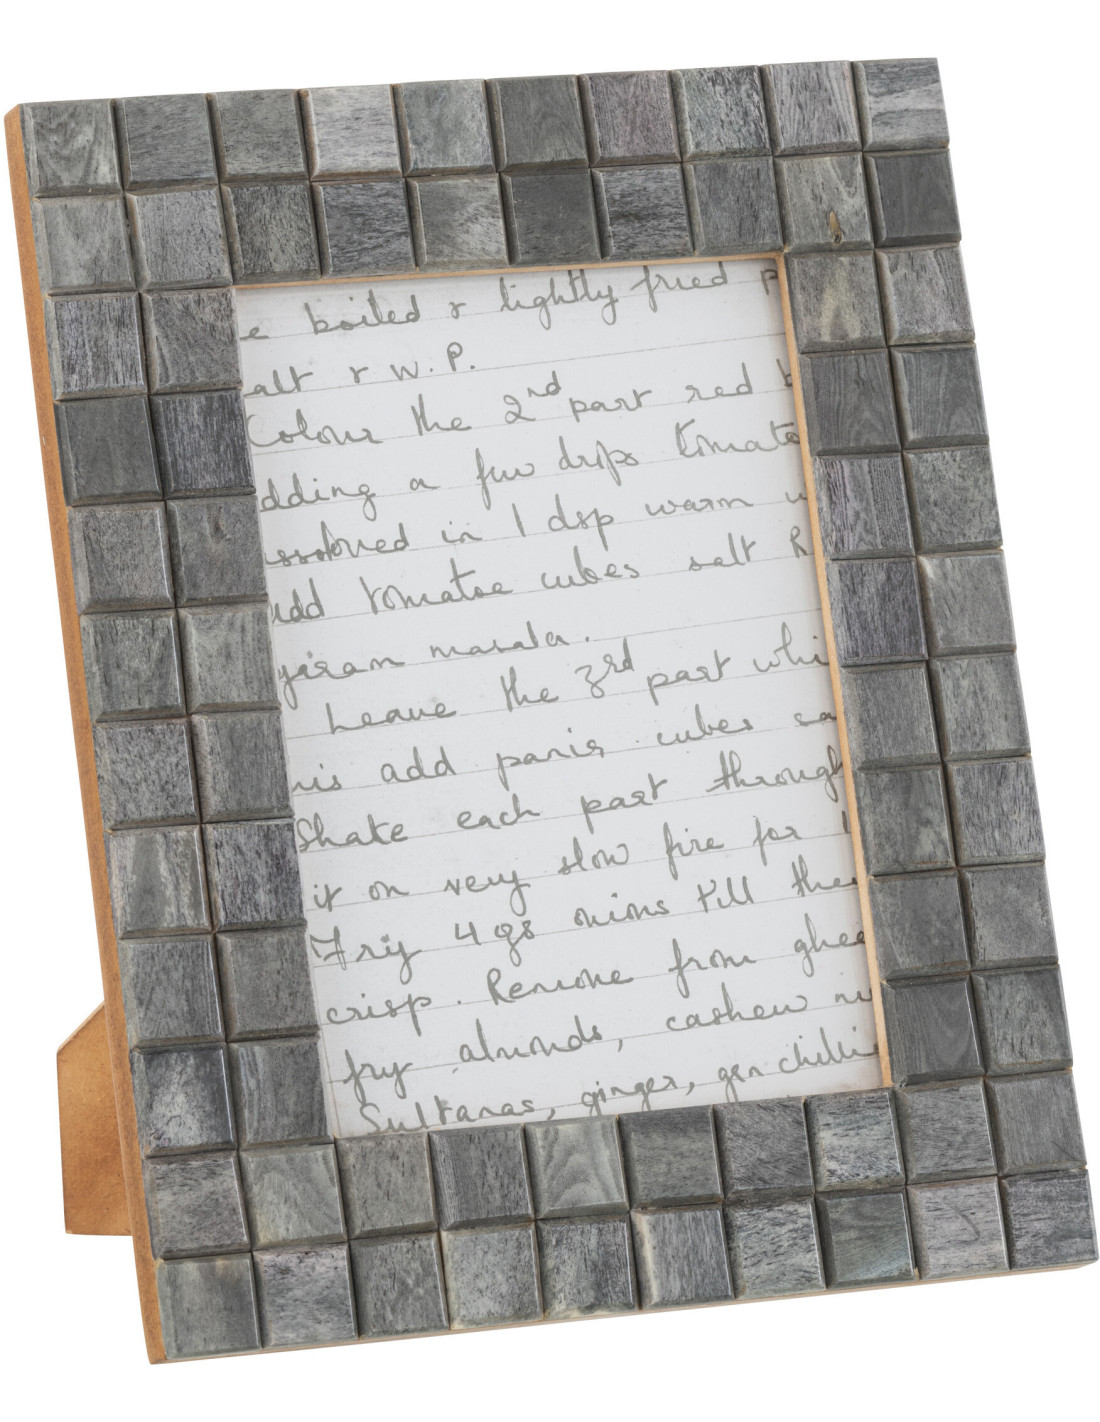 e boiled & lightly fried p
alt & W.P.
Colour the 2nd part red b
dding a few drops tomato
issolved in 1 dsp warm w
add tomatoe cubes salt R
garam masala.
Leave the 3rd part whi
his add panir cubes sa
Shake each part through
it on very slow fire for 1
Fry 4 ozs onions till the
crisp. Remove from ghee
fry almonds, cashew nu
Sultanas, ginger, grn chilli